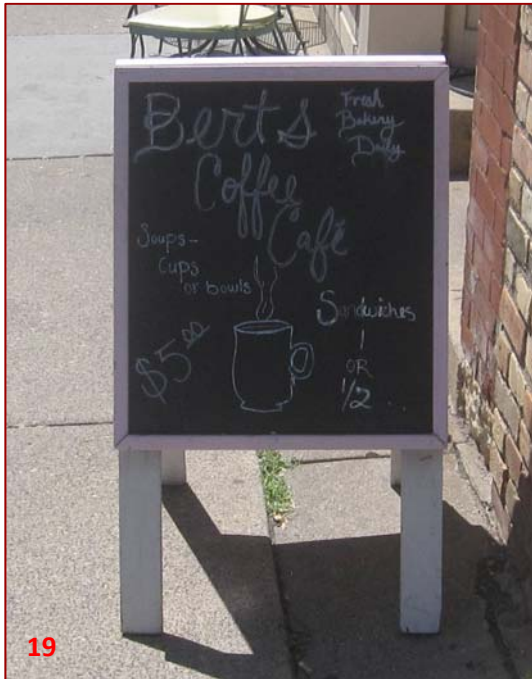 Berts
Coffee
Café
Fresh
Bakery
Daily
Soups-
Cups
or bowls
$5.00
Sandwiches
1
OR
1/2 ...
19